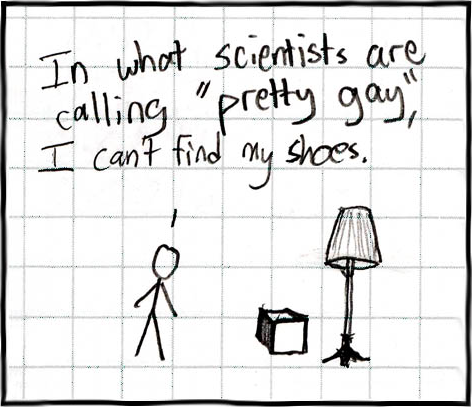 In what scientists are
calling "pretty gay",
I can't find my shoes.